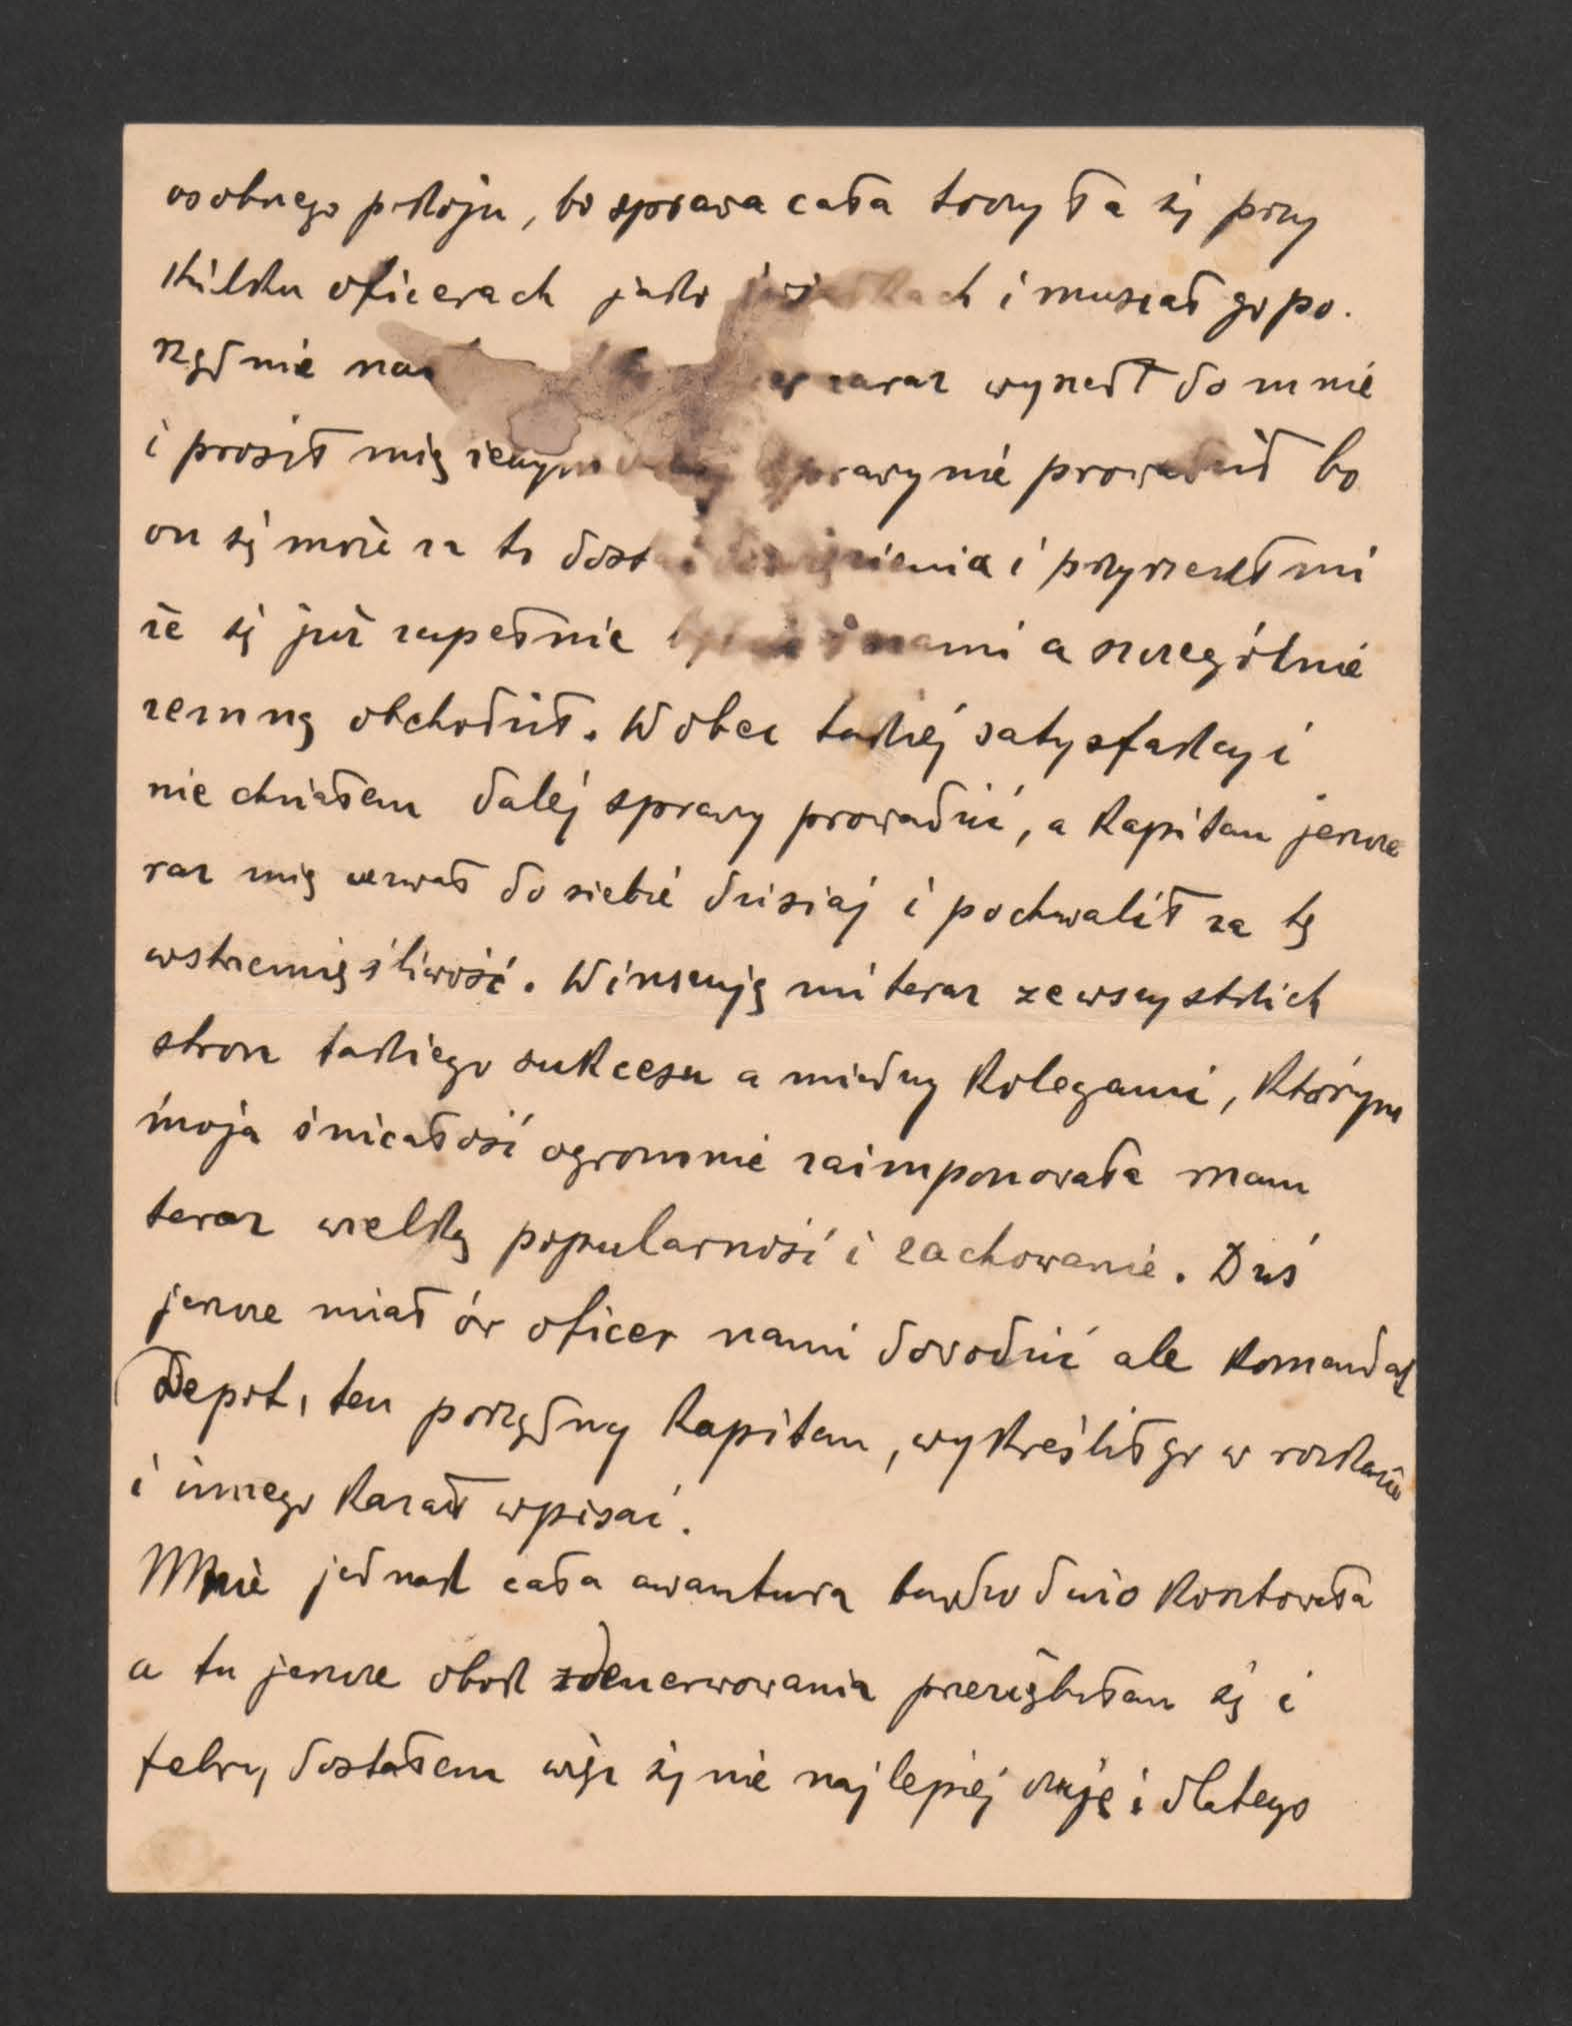 osobnego pokoju, bo sprawa cała toczyła się przy
kilku oficerach jako świadkach i musiał go po.
rządnie zaraz wyszedł do mnie
i prosił mię żebym sprawy nie prowadził bo
on się może za to dostać do więzienia i przyrzekł mi
że się już zupełnie nami a szczególnie
zemną obchodził. Wobec takiej satysfakcyi
nie chciałem dalej sprawy prowadzić, a kapitan jeszcze
raz mię wezwał do siebie dzisiaj i pochwalił za tę
wstrzemięźliwość. Winszują mi teraz ze wszystkich
stron takiego sukcesu a miedzy kolegami, którym
moja śmiałość ogromnie zaimponowała mam
teraz wielką popularność i zachowanie. Dziś
jeszcze miał ów oficer nami dowodzić ale komendant
Depot, ten porządny kapitan, wykreślił go w rozkazie
i innego kazał wpisać.
Mnie jednak cała awantura bardzo dużo kosztowała
a tu jeszcze obok zdenerwowania przeziębiłam się i
febry dostałem więc się nie najlepiej czuję i dlatego